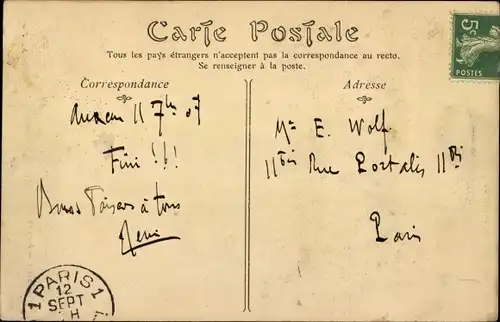 Carte Postale
Tous les pays étrangers n'acceptent pas la correspondance au recto.
Se renseigner à la poste.
Correspondance
11 7bre 07
Fini !!!
Bons Baisers à tous
Adresse
Mr E. Wolf
11bis Rue Portalis 11bis
Paris
5c
POSTES
1 PARIS 1
12
SEPT